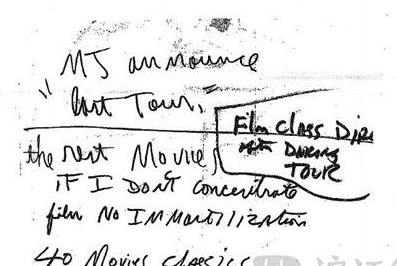 MJ announce
"last Tour,"
Film class Dire
During
TOUR
the rest Movies,
IF I Don't concentrate
film No IMMortilization
40 Movies classics